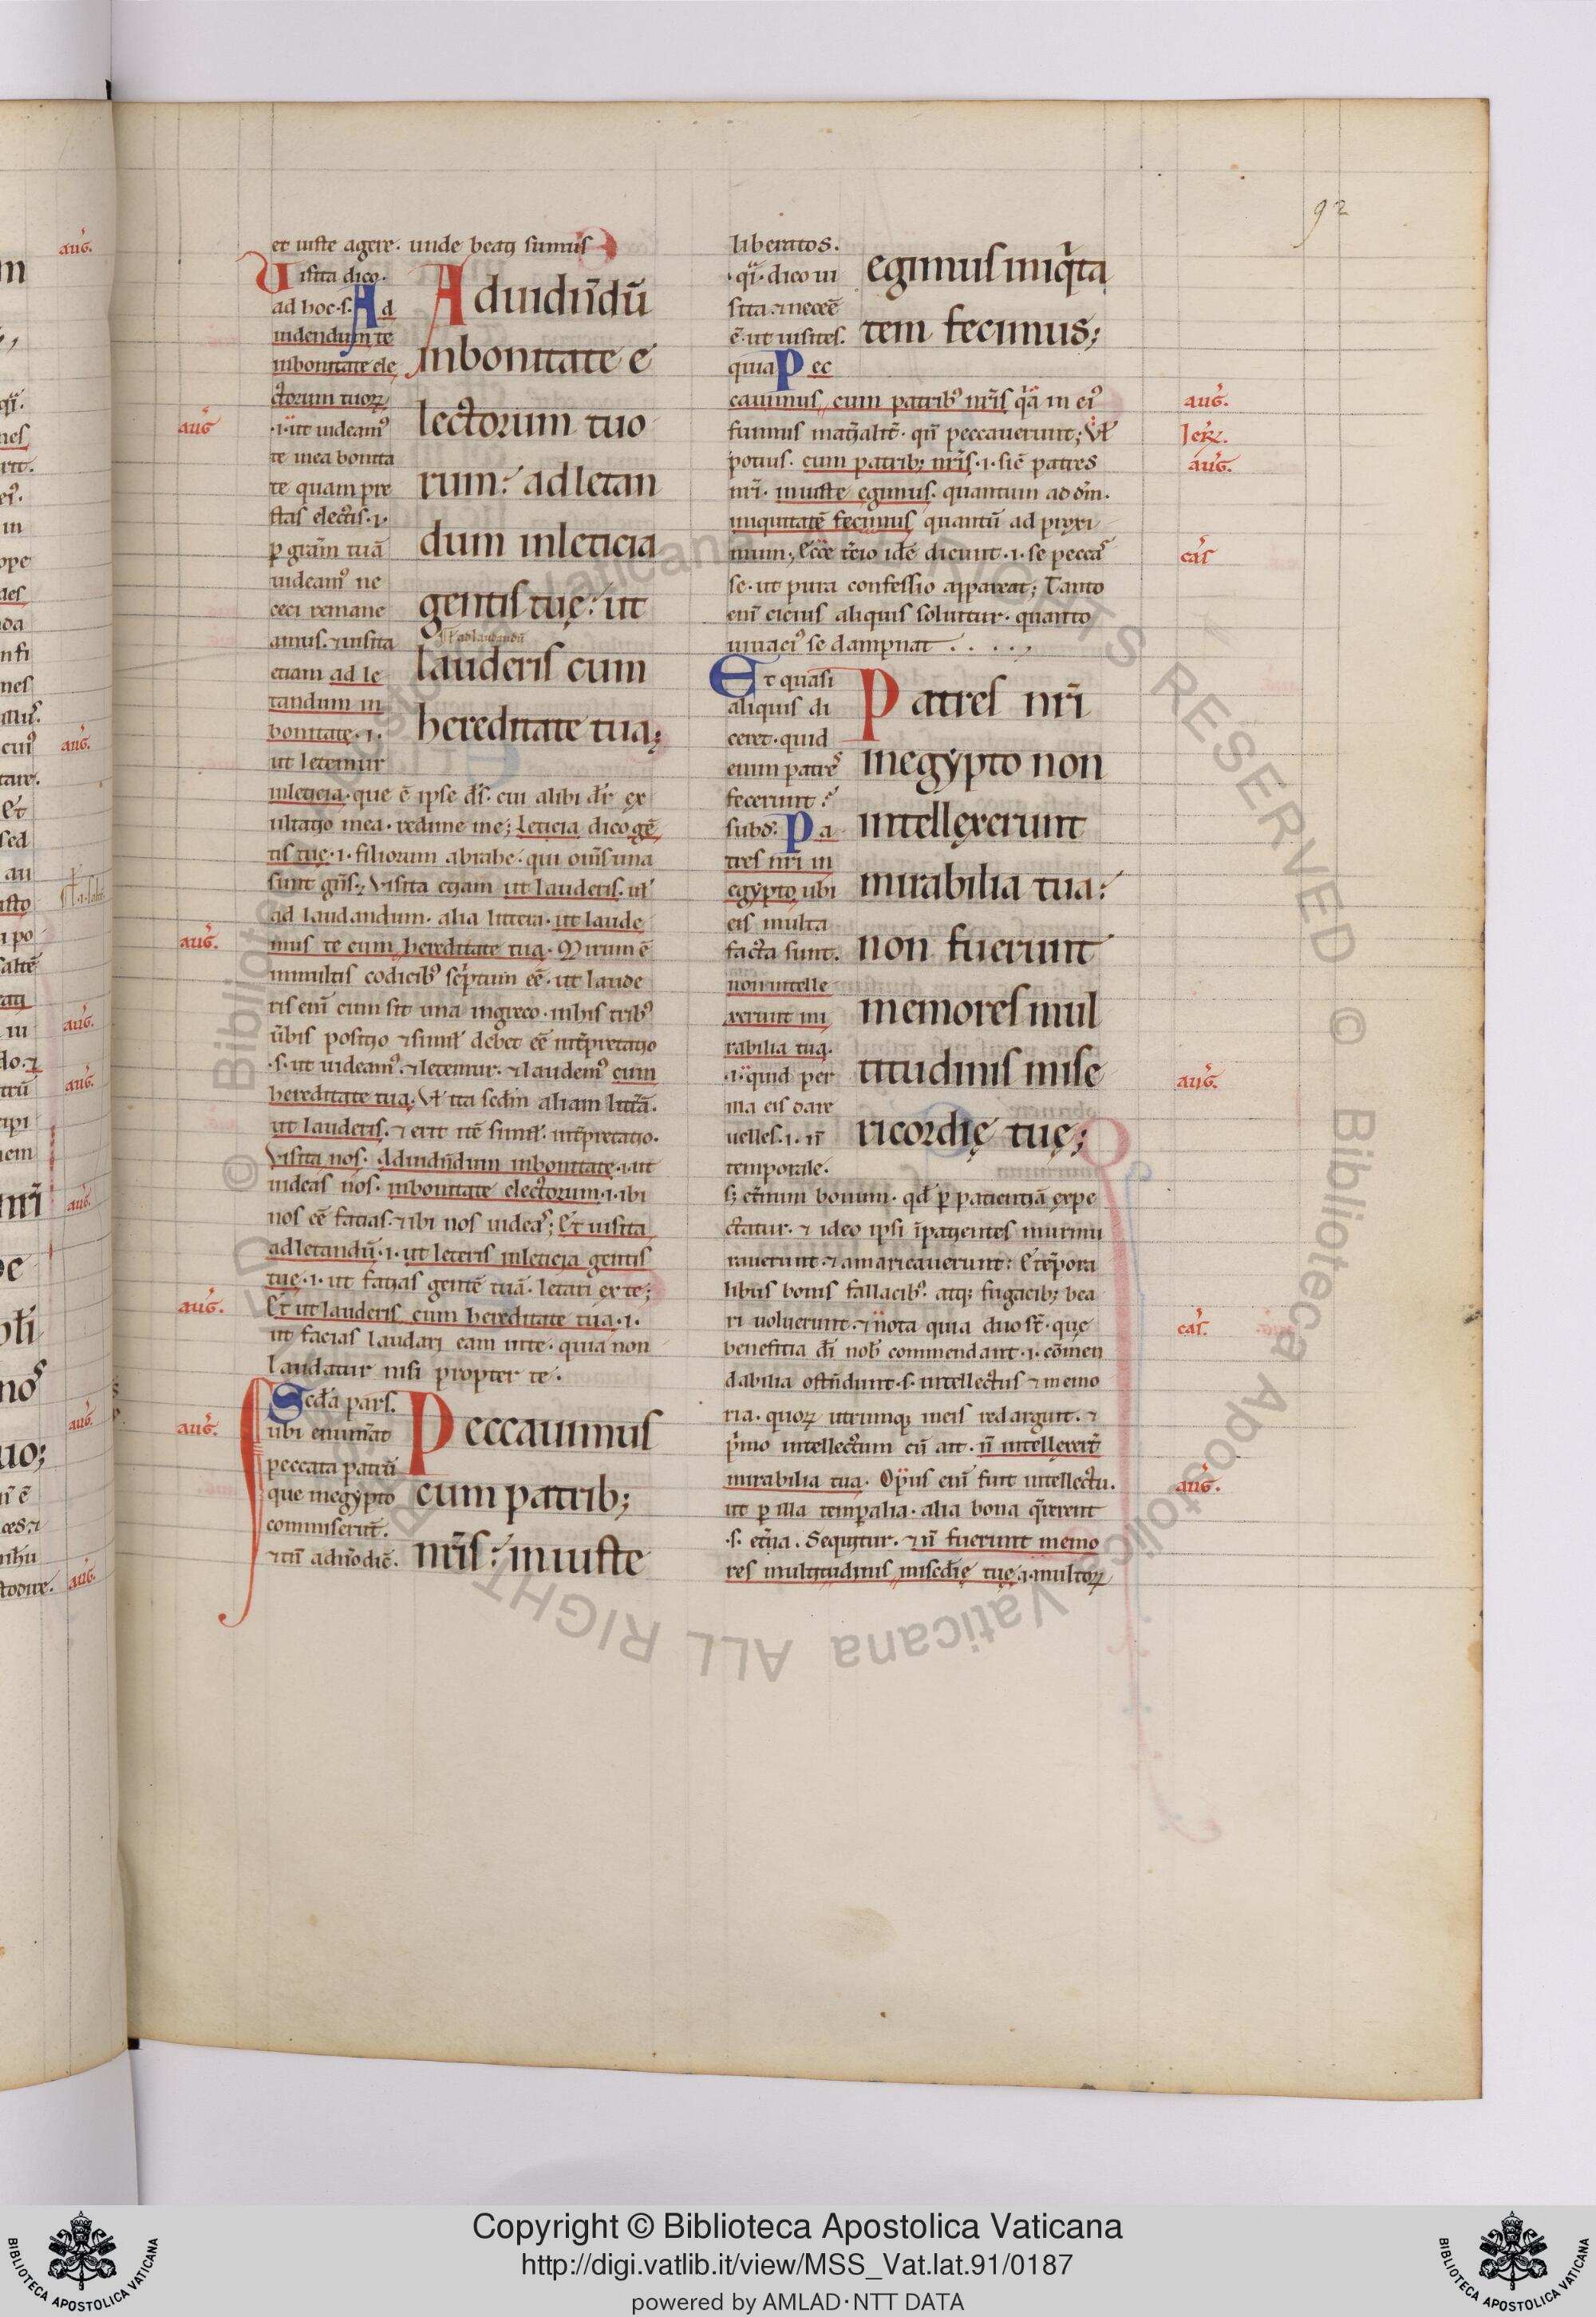 92
et iuste agere. unde beatj sumus
Uisita dico.
ad hoc .s. Ad
uidendum te
inbonitate ele
ctorum tuorꝝ
.i. ut uideamꝰ
te inea bonita
te quam pre
stas electis .i.
ꝑ gram̄ tuā
uideamꝰ ne
ceci remane
amus. ⁊ uisita
etiam ad le
tandum in
bonitate .i.
ut letemur
Aduidn̄dū
inbonitate e
lectorum tuo
rum: adletan
dum inleticia
gentis tuę: ut
lauderis cum
hereditate tua;
inleticia. que ē ipse ds̄. cui alibi dr̄ ex
ultatio mea. redime me; Leticia dico gē
tis tuę .i. filiorum abrahe. qui om̄s una
sunt gn̄s; Visita etjam ut lauderis. ul̄
ad laudandum. alia littera. ut laude
mus te cum hereditate tua. Mirum ē
inmultis codicibꝰ scͥptum eē. ut laude
ris enī cum sit una ingreco. inhis tribꝰ
ūbis positio ⁊ simil̄ debet eē int̄pretatio
.s. ut uideamꝰ. ⁊ letemur. ⁊ laudemꝰ cum
hereditate tua. Vl̄ ita scdm̄ aliam litt̄ā.
ut lauderis. ⁊ erit itē simil̄. int̄pretatio.
Visita nos. Aduidn̄dum inbonitate .i. ut
uideas nos. inbonitate electorum .i. ibi
nos eē facias. ⁊ ibi nos uideas; Et uisita
adletandū .i. ut leteris inleticia gentis
tuę .i. ut fatjas gentē tuā. letari ex te;
Et ut lauderis cum hereditate tua .i.
ut facias laudari eam inte. quia non
laudatur nisi propter te.
Scd̄a pars.
ubi enum̄at
peccata patrū
que inegypto
commiserūt.
Peccauimus
cum patrib;
nr̄is: iniuste
liberatos.
qͥ. dico ui
sita. ⁊ necēe
ē. ut uisites.
quia Pec
egimus iniqͥta
tem fecimus;
cauimus, cum patribꝰ nr̄is qͥa in eiꝰ
potius. cum patrib; nr̄is .i. sic̄ patres
nr̄i. iniuste egimus. quantum ad dm̄.
iniquitatē fecimus quantū ad proxi
se. ut pura confessio appareat; Tanto
enī cicius aliquis soluitur. quanto
Et quasi
aliquis di
ceret. quid
enim patres
fecerunt?
subd. Pa
tres nr̄i in
egypto ubi
eis multa
facta sunt.
non intelle
xerunt mi
rabilia tua.
.i. quid per
illa eis dare
uelles .i. n̄
temporale.
Patres nr̄i
inegypto non
intellexerunt
mirabilia tua:
non fuerunt
memores mul
titudinis mise
ricordię tuę;
s; et̄num bonum. qd̄ ꝑ patientiā expe
ctatur. ⁊ ideo ipsi īpatjentes murmu
rauerunt. ⁊ amaricauerunt: Et tēpora
libus bonis fallacibꝰ. atq; fugacib; bea
ri uoluerunt. ⁊ Nota quia duo st̄. que
benefitia dī nob̄ commendant .i. cōmen
dabilia ostn̄dunt .s. intellectus ⁊ memo
ria. quorꝝ utrumq; ineis redarguit. ⁊
pͥmo intellectum cū ait. n̄ intellexer̄t
mirabilia tua. Opus enī fuit intellectu.
ut ꝑ illa temꝑalia. alia bona qͥrerent
.s. et̄na. Sequitur. ⁊ n̄ fuerunt memo
res multitudinis, misc̄die tuę .i. multorꝝ
aug.
aug.
aug.
aug.
aug.
Ier̄.
aug.
cas̄
aug.
cas̄.
aug.
© Biblioteca Apostolica Vaticana ALL RIGHTS RESERVED
Copyright © Biblioteca Apostolica Vaticana
http://digi.vatlib.it/view/MSS_Vat.lat.91/0187
powered by AMLAD·NTT DATA
BIBLIOTECA APOSTOLICA VATICANA
BIBLIOTECA APOSTOLICA VATICANA